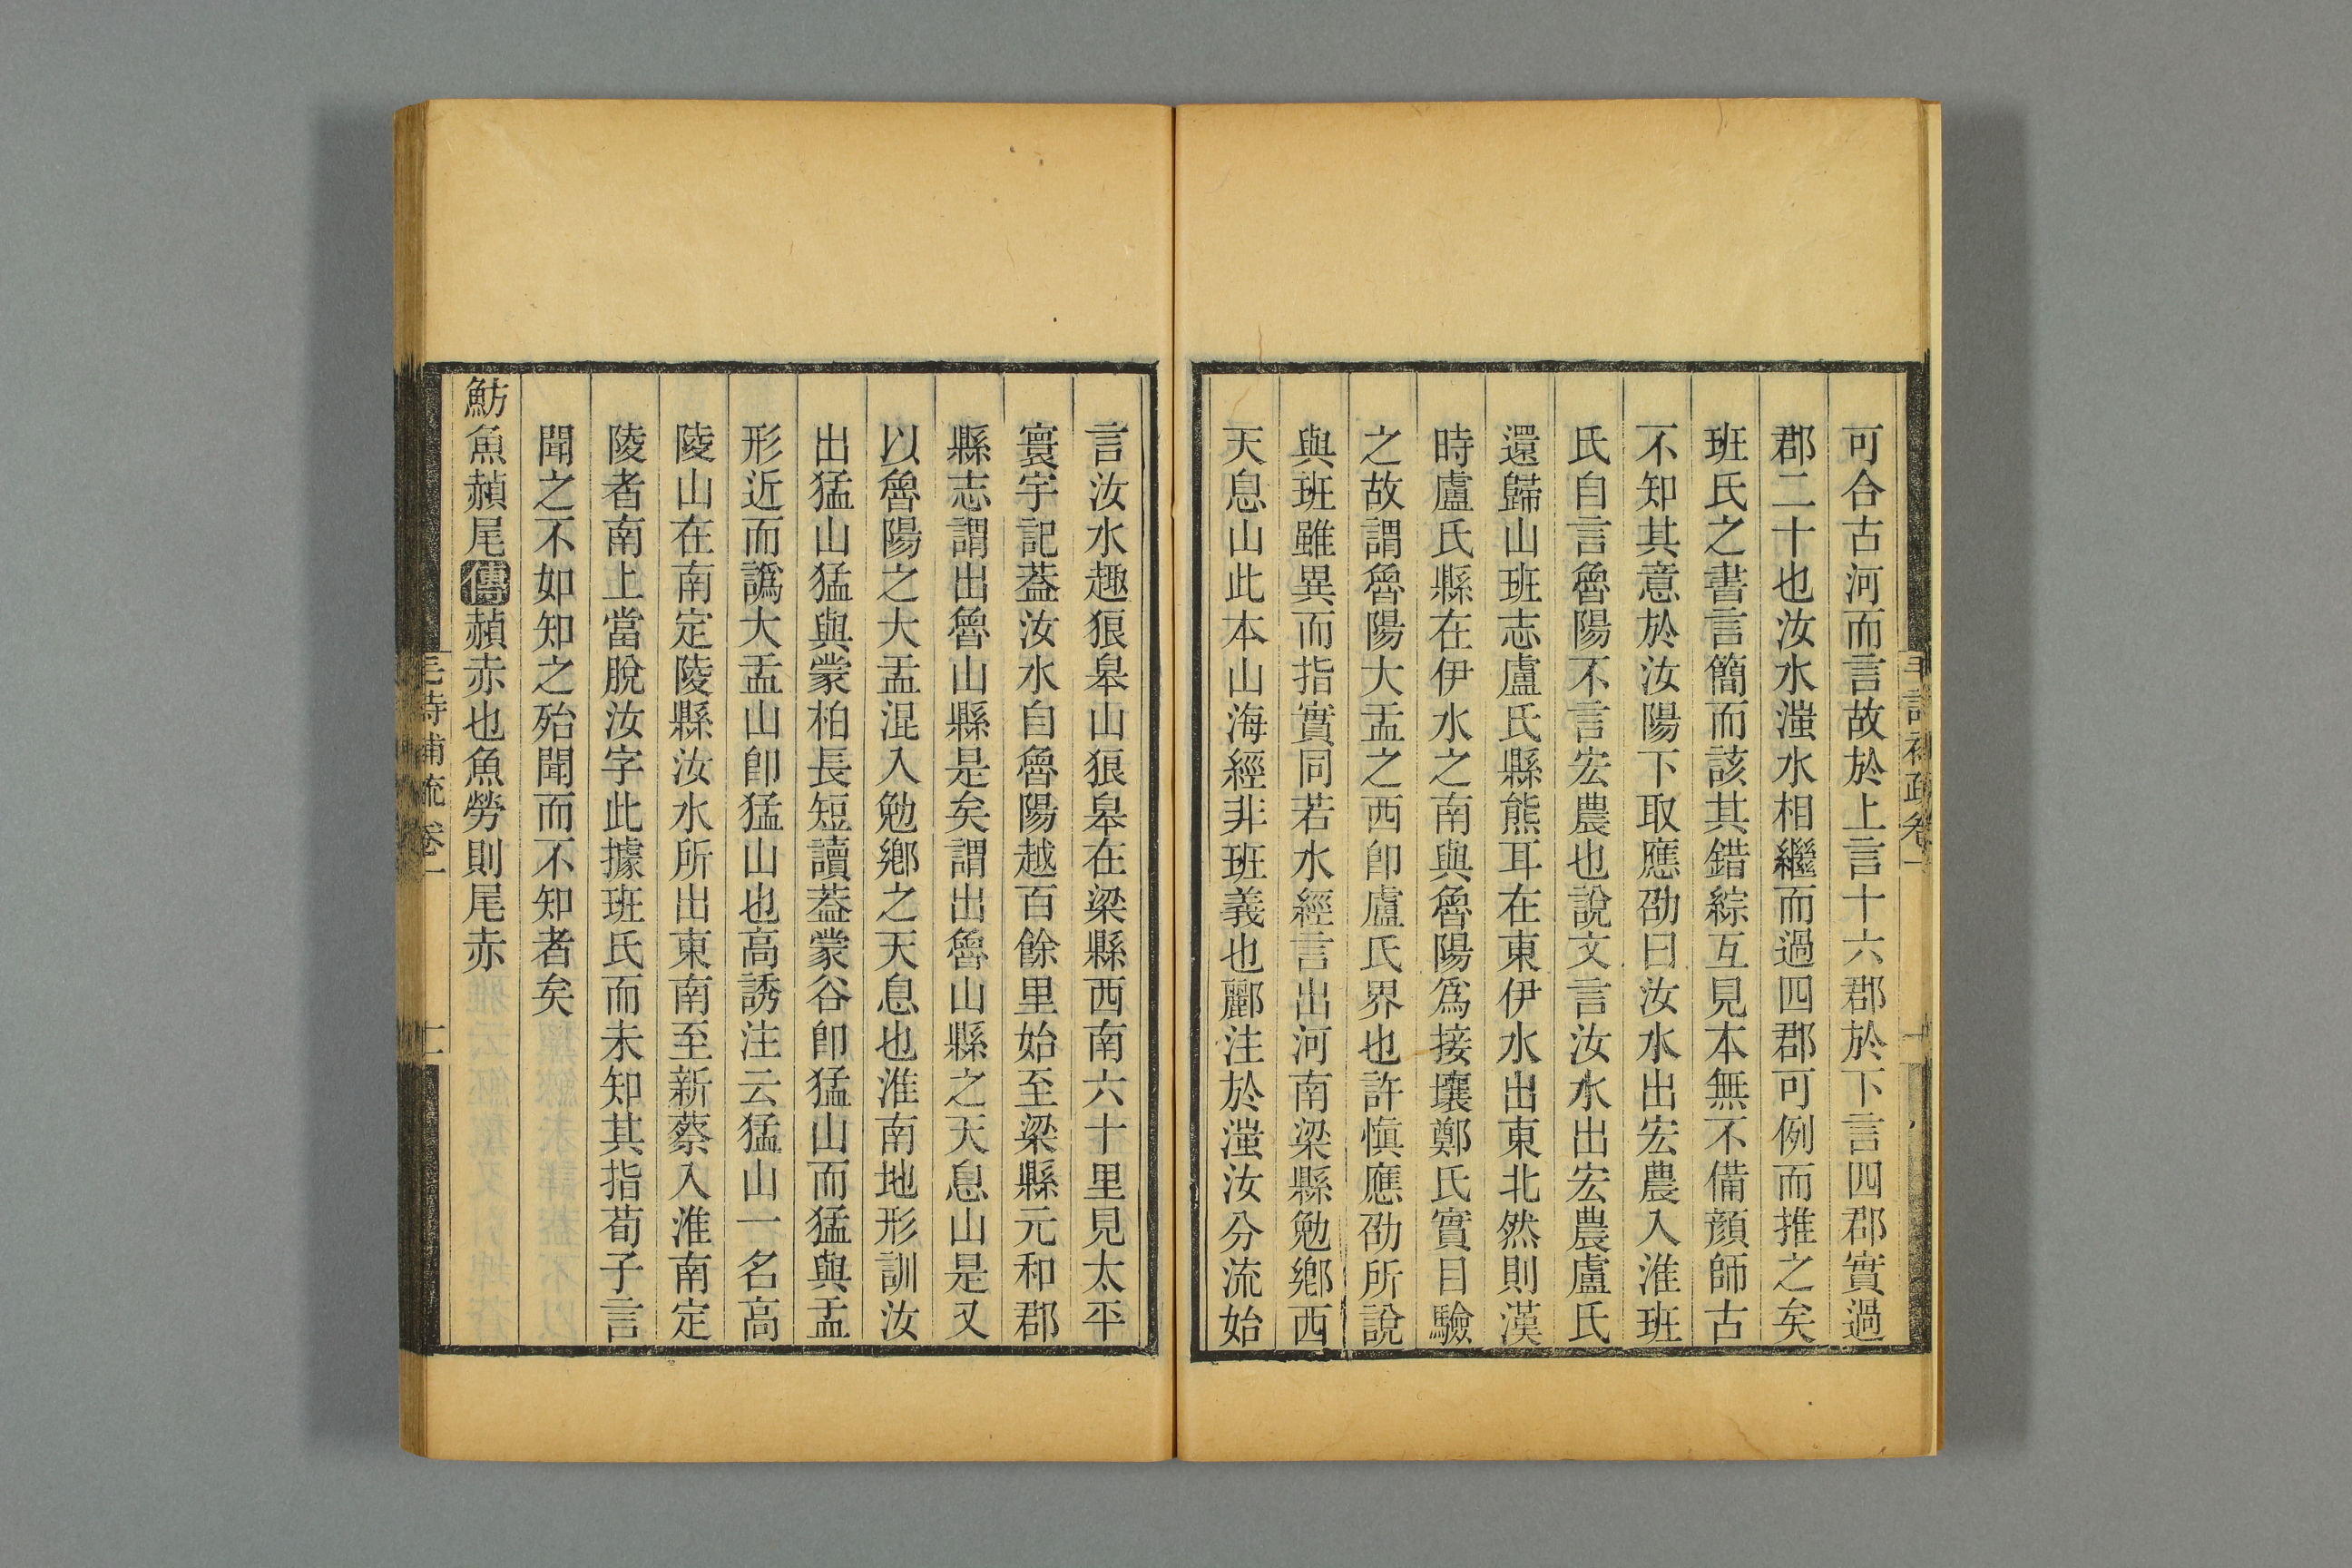 可合古河而言故於上言十六郡於下言四郡實過
郡二十也汝水滍水相繼而過四郡可例而推之矣
班氏之書言簡而該其錯綜互見本無不備顔師古
不知其意於汝陽下取應劭曰汝水出宏農入淮班
氏自言魯陽不言宏農也說文言汝水出宏農盧氏
還歸山班志盧氏縣熊耳在東伊水出東北然則漢
時盧氏縣在伊水之南與魯陽爲接壤鄭氏實目驗
之故謂魯陽大盂之西卽盧氏界也許愼應劭所說
與班雖異而指實同若水經言出河南梁縣勉鄕西
天息山此本山海經非班義也酈注於滍汝分流始
言汝水趣狼皋山狼皋在梁縣西南六十里見太平
寰宇記葢汝水自魯陽越百餘里始至梁縣元和郡
縣志謂出魯山縣是矣謂出魯山縣之天息山是又
以魯陽之大盂混入勉鄕之天息也淮南地形訓汝
出猛山猛與蒙柏長短讀葢蒙谷卽猛山而猛與盂
形近而譌大盂山卽猛山也高誘注云猛山一名高
陵山在南定陵縣汝水所出東南至新蔡入淮南定
陵者南上當脫汝字此據班氏而未知其指荀子言
聞之不如知之殆聞而不知者矣
魴魚赬尾傳赬赤也魚勞則尾赤
毛詩補疏卷一